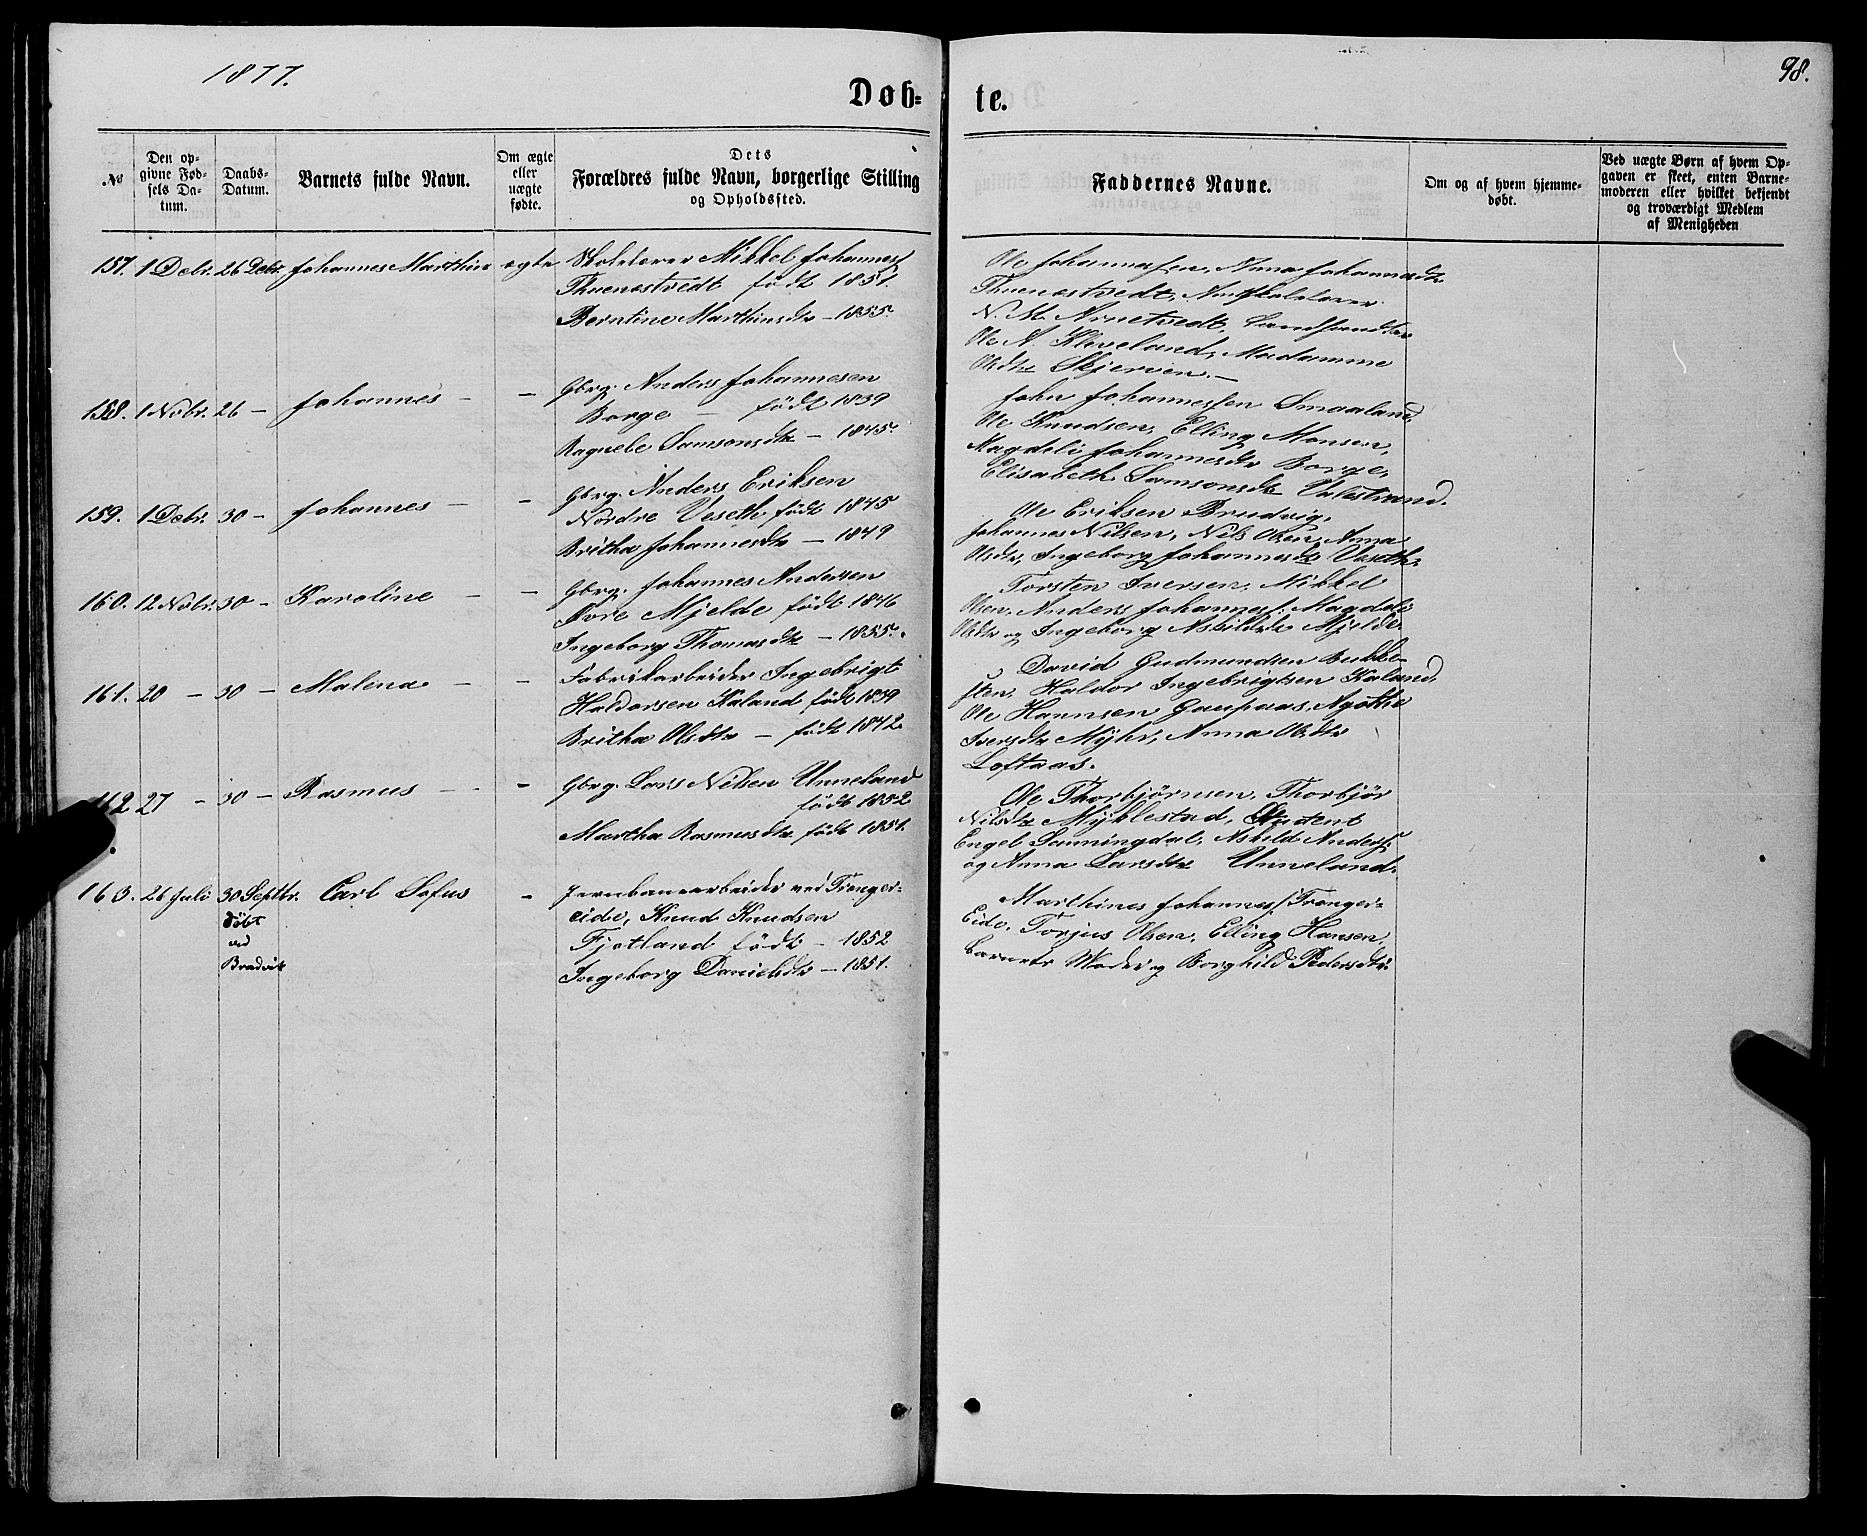 1877.
98.
Døb=
te.
No
Den op=
givne Fød=
sels Da=
tum.
Daabs=
Datum.
Barnets fulde Navn.
Om ægte
eller
uægte
fødte.
Dets
Forældres fulde Navn, borgerlige Stilling
og Opholdssted.
Faddernes Navne.
Om og af hvem hjemme=
døbt.
Ved uægte Børn af hvem Op=
gaven er skeet, enten Barne=
moderen eller hvilket bekjendt
og troværdigt Medlem
af Menigheden
157. 1 Debr. 26 Debr. Johannes Marthin ægte Skolelærer Mikkel Johannes
Thuenestvedt født 1851.
Berntine Marthinsdtr – 1855.
Ole Johannessen, Anna Johannesdtr
Thuenestvedt,
N. M. Arnetvedt,
Ole A. Kleveland, Madamme
Olsdtr Skjerven. –
158. 1 Nobr. 26 – Johannes – – Gbrg. Anders Johannesen
Borge – født 1839
Ragnele Samsonsdtr – 1845.
John Johannessen Smaaland,
Ole Knudsen, Elling Monsen,
Magdeli Johannesdtr Borge,
Elisabeth Samsonsdtr Valestrand.
159. 1 Debr. 30 – Johannes – – Gbrg. Anders Eriksen
Nordre Veseth født 1845
Britha Johannesdtr – 1849
Ole Eriksen Brudvig,
Johannes Nilsen, Nils Olsen, Anna
Olsdtr, Ingeborg Johannesdtr Veseth.
160. 12 Nobr. 30 – Karoline – – Gbrg. Johannes Andersen
Øvre Mjelde født 1846
Ingeborg Thomasdtr – 1855.
Torsten Iversen, Mikkel
Olsen, Anders Johannes, Magdeli
Olsdtr og Ingeborg Askildsdtr Mjelde.
161. 20 – 30 – Malena – – Fabrikarbeider Ingebrigt
Haldorsen Kaland født 1839
Britha Olsdtr – født 1842
David Gudmundsen Bukke-
sten, Haldor Ingebrigtsen Kaland,
Ole Hannsen Gaupaas, Agatha
Iversdtr Myhr, Anna Olsdtr
Loftaas.
162 27 – 30 – Rasmus – – Gbrg. Lars Nilsen Unneland
født 1852
Martha Rasmusdtr født 1851.
Ole Thorbjørnsen, Thorbjør
Nilsdtr Myklestad, Student
Engel Lanningdal, Askild Anders.
og Anna Larsdtr Unneland.
163. 26 Juli 30 Septbr. Carl Sofus – Jernbanearbeider ved Trenger-
døbt
ved
Bradvik
eide, Knud Knudsen
Fjotland født – 1852
Ingeborg Danielsdtr – 1851.
Marthines Johannes. Trenger-
Eide, Torjus Olsen, Elling Hansen,
Barnets Moder og Borghild Pedersdtr.